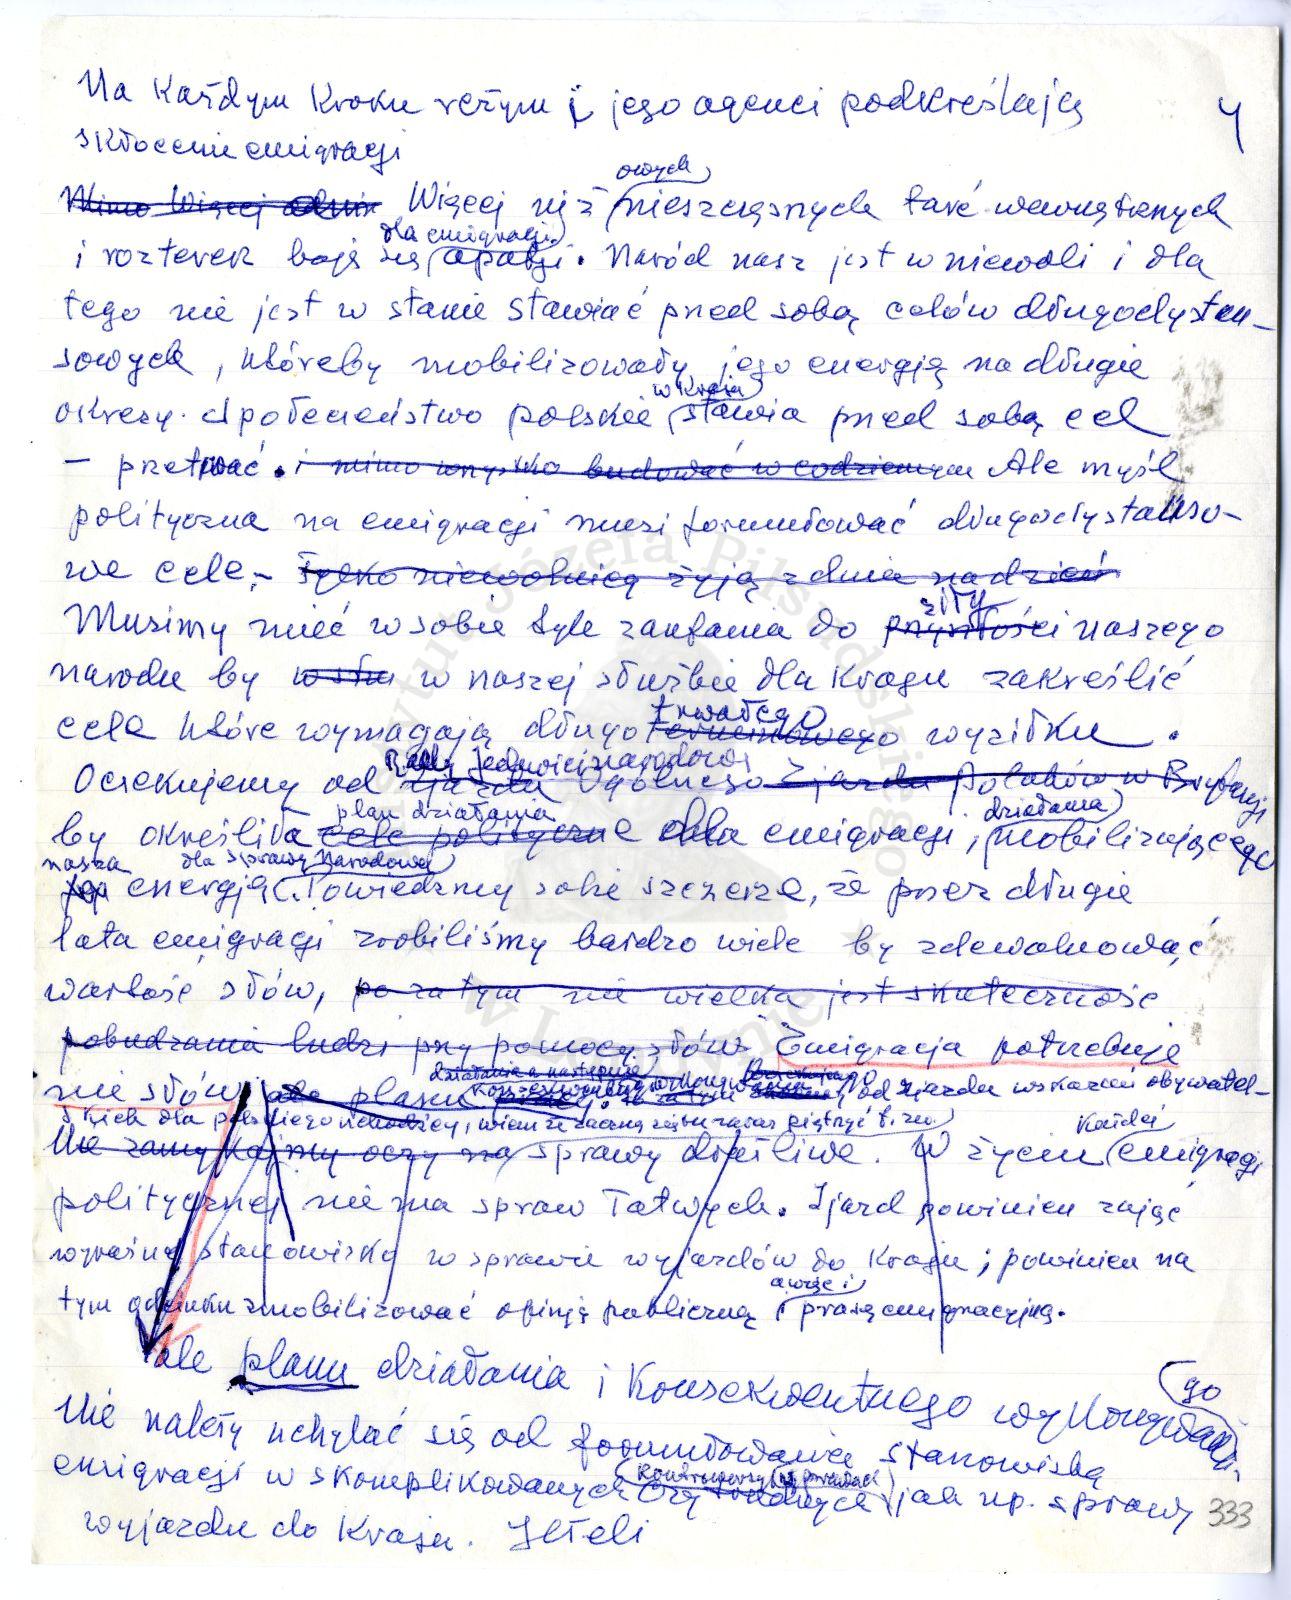 Na każdym kroku reżym i jego agenci podkreślają
4
skłócenie emigracji
owych
Mimo Więcej Więcej niż nieszczęsnych tarć wewnętrznych
dla emigracji
i rozterek boję się apatji. Naród nasz jest w niewoli i dla
tego nie jest w stanie stawiać przed sobą celów długodystan-
sowych, któreby mobilizowały jego energję na długie
w Kraju
okresy. Społeczeństwo polskie stawia przed sobą cel
- przetrwać. i mimo wszystko budować w codziennym Ale myśl
polityczna na emigracji musi formułować długodystanso-
we cele. - Tylko niewolnicy żyją z dnia na dzień
siły
Musimy mieć w sobie tyle zaufania do przyszłości naszego
narodu by w naszej służbie dla Kraju zakreślić
trwałego
cele które wymagają długo terminowego wysiłku.
Rady Jedności Narodowej
Oczekujemy od Zjazdu Ogólnego Zjazdu Polaków w Brytanji
plan działania
działania
by określiła cele polityczne dla emigracji, mobilizującego
nasza dla sprawy Narodowej
energję. Powiedzmy sobie szczerze, że przez długie
lata emigracji zrobiliśmy bardzo wiele by zdewaluować
wartość słów, po za tym nie wielka jest skuteczność
pobudzania ludzi przy pomocy słów Emigracja potrzebuje
działania a następnie
nie słów ale planu od zjazdu wskazań obywatel-
skich dla polskiego uchodźcy, wiem że zaczną się tu zaraz piętrzyć t. zw.
każdej
Nie zamykajmy oczy na sprawy drażliwe. W życiu emigracji
politycznej nie ma spraw łatwych. Zjazd powinien zająć
wyraźne stanowisko w sprawie wyjazdów do Kraju; powinien na
a więc i
tym odcinku zmobilizować opinję publiczną i prasę emigracyjną.
ale planu działania i Konsekwentnego wykonywania
go
Nie należy uchylać się od formułowania stanowiska
emigracji w skomplikowanych czy trudnych jak np. sprawy
333
wyjazdu do Kraju. Jeżeli
Instytut Józefa Piłsudskiego
w Londynie